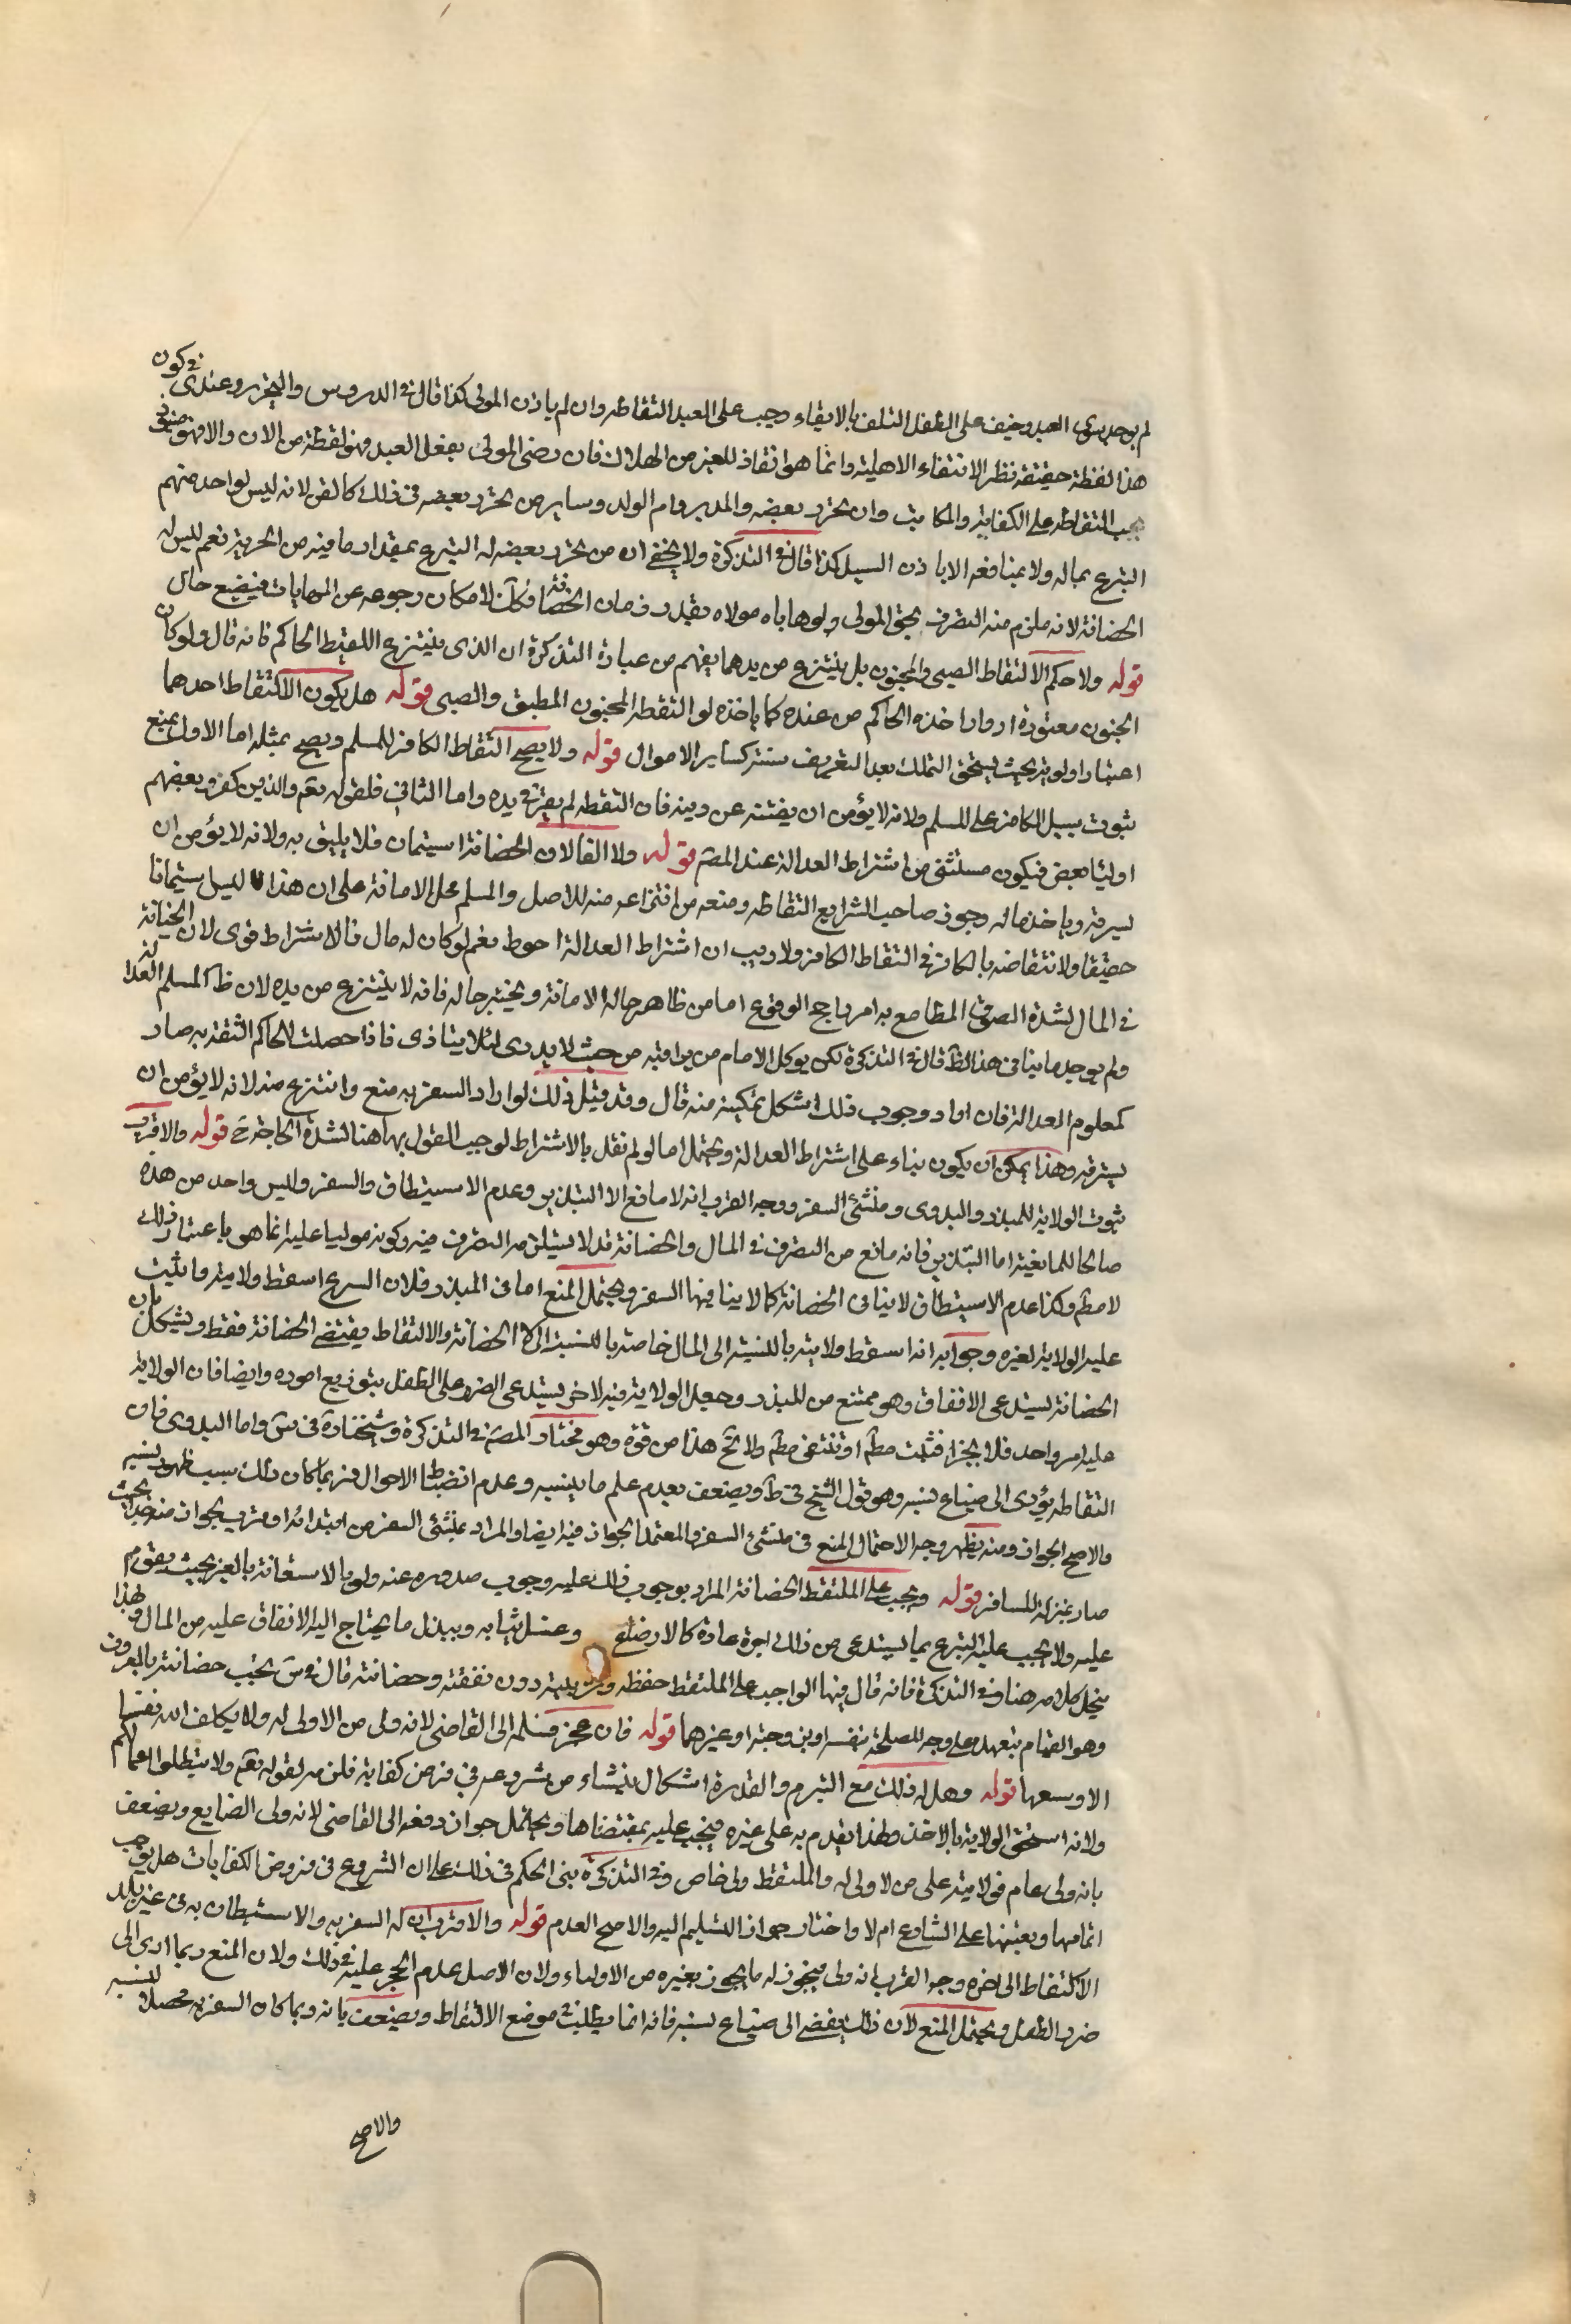 لم يوجد سوى العبد وخيف على الطفل التلف بالابقاء وجب على العبد التقاطه وان لم ياذن المولى كذا قال في الدروس والتحرير وعندي في كون
هذا لقطة حقيقة نظر لانتفاء الاهلية وانما هو انقاذ للغير من الهلاك فان رضى المولى بفعل العبد فهو لقطة من الان والا فهو ضايع
يجب التقاطه على الكفاية والمكاتب وان تحرر بعضه والمدبر وام الولد وساير من تحرر بعضه في ذلك كالقن لانه ليس لواحد منهم
التبرع بماله ولا بمنافعه الا باذن السيد كذا قال في التذكرة ولا يخفى ان من تحرر بعضه له التبرع بمقدار ما فيه من الحرية نعم ليس له
الحضانة لانه ملزم منه التصرف بحق المولى ولو هاياه مولاه بقدر زمان الحضانة فكك لامكان رجوعه عن المهاياة فيضيع حال
قوله ولا حكم لالتقاط الصبي والمجنون بل ينتزع من يدهما يفهم من عبارة التذكرة ان الذي ينتزع اللقيط الحاكم فانه قال ولو كان
الجنون معتوره ادوارا اخذه الحاكم من عنده كما ياخذه لو التقطه المجنون المطبق والصبي قوله هل يكون الالتقاط احدهما
اعتبار اولوية بحيث يستحق التملك بعد التعريف ستتر كساير الاموال قوله ولا يصح التقاط الكافر للمسلم ويصح بمثله اما الاول فيمنع
ثبوت سبيل للكافر على المسلم ولانه لا يؤمن ان يفتنه عن دينه فان التقطه لم يقر في يده واما الثاني فلقوله تعم والذين كفروا بعضهم
اوليا بعض فيكون مستثنى من اشتراط العدالة عند المصم قوله ولا الفاسق لان الحضانة استيمان فلا يليق به ولانه لا يؤمن ان
يسرقه وياخذ ماله وجوز صاحب الشرايع التقاطه ومنعه من انتزاعه منه للاصل والمسلم محل الامانة على ان هذا ليس ستيمانا
حقيقا ولانتقاضه بالكافر في التقاط الكافر ولا ريب ان اشتراط العدالة احوط نعم لو كان له مال فالاشتراط قوى لان الخيانة
في المال لشدة المطامع به امر راجح الوقوع اما من ظاهر حاله الامانة ويختبر حاله فانه لا ينتزع من يده لان ظ المسلم العدالة
ولم يوجد ما ينافي هذا الظ قال في التذكرة لكن يوكل الامام من يراقبه من حيث لا يدرى لئلا يتاذى فاذا حصلت للحاكم الثقة به صار
كمعلوم العدالة فان اراد وجوب ذلك اشكل تمكينه منه قال وقد قيل ذلك لو اراد السفر به منع وانتزع منه لانه لا يؤمن ان
يسترقه وهذا يمكن ان يكون بناء على اشتراط العدالة ويحتمل اما لو لم نقل بالاشتراط لوجب القول بها هنا لشدة الحاجة ح قوله والاقرب
ثبوت الولاية للمبذر والبدوى ومنشئ السفر ووجه القرب انه لا مانع الا التبذير وعدم الاستيطان والسفر وليس واحد من هذه
صالحا للمانعية اما التبذير فانه مانع من التصرف في المال والحضانة قد لا يستلزم التصرف فيه وكونه موليا عليه انما هو باعتبار ذلك
لا مطم وكذا عدم الاستيطان لا ينافي الحضانة كما لا ينافيها السفر ويحتمل المنع اما في المبذر فلان الشرع اسقط ولايته واثبت
عليه الولاية لغيره وجوابه انه اسقط ولايته بالنسبة الى المال خاصة بالنسبة الى الحضانة والالتقاط يقتضى الحضانة فقط ويشكل بان
الحضانة يستدعى الانفاق وهو ممتنع من المبذر وجعل الولاية فيه لاخر يستدعى الضرر على الطفل بتوزيع اموره وايضا فان الولاية
عليه امر واحد فلا يتجزأ فتثبت مطم او تنتفى مطم ولا يخ هذا من قوة وهو مختار المصم في التذكرة وشيخنا في س واما البدوى فان
التقاطه يؤدى الى ضياع نسبه وهو قول الشيخ في ط ويضعف بعدم علم ما ينسبه وعدم انضباط الاحوال فربما كان ذلك سبب ظهور نسبه
والاصح الجواز ومنه يظهر وجه الاحتمال المنع في منشئ السفر والمعتمد الجواز فيه ايضا والمراد بمنشئ السفر من ابتدائه او قرب بحيث
صار بمنزلة المسافر قوله ويجب على الملتقط الحضانة المراد بوجوب ذلك عليه وجوب صدوره عنه ولو بالاستعانة بالغير بحيث يقوم
عليه ولا يجب عليه التبرع بما يستدعى من ذلك اجرة عادة كالارضاع وغسل ثيابه وببذل ما يحتاج اليه الانفاق عليه من المال وبهذا
ينحل كلامه هنا وفي التذكرة فانه قال فيها الواجب على الملتقط حفظه وتربيته دون نفقته وحضانته قال في س يجب حضانته بالمعروف
وهو القيام بتعهده على وجه المصلحة بنفسه او بزوجته او غيرهما قوله فان عجز سلمه الى القاضى لانه ولى من لا ولى له ولا يكلف الله نفسا
الا وسعها قوله وهل له ذلك مع التبرم والقدرة اشكال ينشاء من شروعه في فرض كفاية فلزمه لقوله تعم ولا تبطلوا اعمالكم
ولانه استحق الولاية بالاخذ ولهذا يقدم به على غيره فيجب عليه بمقتضاها ويحتمل جواز دفعه الى القاضى لانه ولى الضايع ويضعف
بانه ولى عام فولايته على من لا ولى له والملتقط ولى خاص وفي التذكرة بنى الحكم في ذلك على ان الشروع في فروض الكفايات هل يوجب
اتمامها ويعينها على الشارع ام لا واختار جواز التسليم اليه والاصح العدم قوله والاقرب ان له السفر به والاستيطان به في غير بلد
الالتقاط الى اخره وجه القرب انه ولى فيجوز له ما يجوز لغيره من الاولياء ولان الاصل عدم الحجر عليه في ذلك ولان المنع ربما ادى الى
ضرر الطفل ويحتمل المنع لان ذلك يفضى الى ضياع نسبه فانه انما يطلب في موضع الالتقاط ويضعف بانه ربما كان السفر به محصلا لنسبه
والاصح